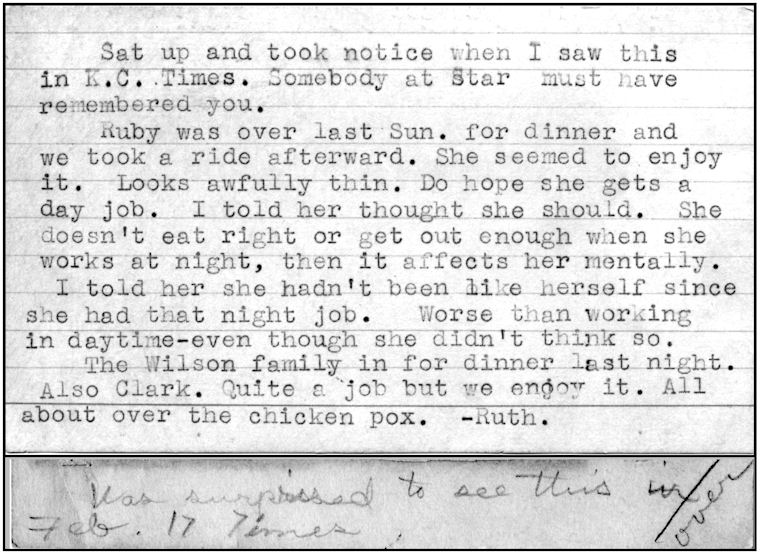 Sat up and took notice when I saw this
in K.C. Times. Somebody at Star must have
remembered you.
Ruby was over last Sun. for dinner and
we took a ride afterward. She seemed to enjoy
it. Looks awfully thin. Do hope she gets a
day job. I told her thought she should. She
doesn't eat right or get out enough when she
works at night, then it affects her mentally.
I told her she hadn't been like herself since
she had that night job. Worse than working
in daytime-even though she didn't think so.
The Wilson family in for dinner last night.
Also Clark. Quite a job but we enjoy it. All
about over the chicken pox. -Ruth.
Was surprised to see this in
Feb. 17 Times.
over